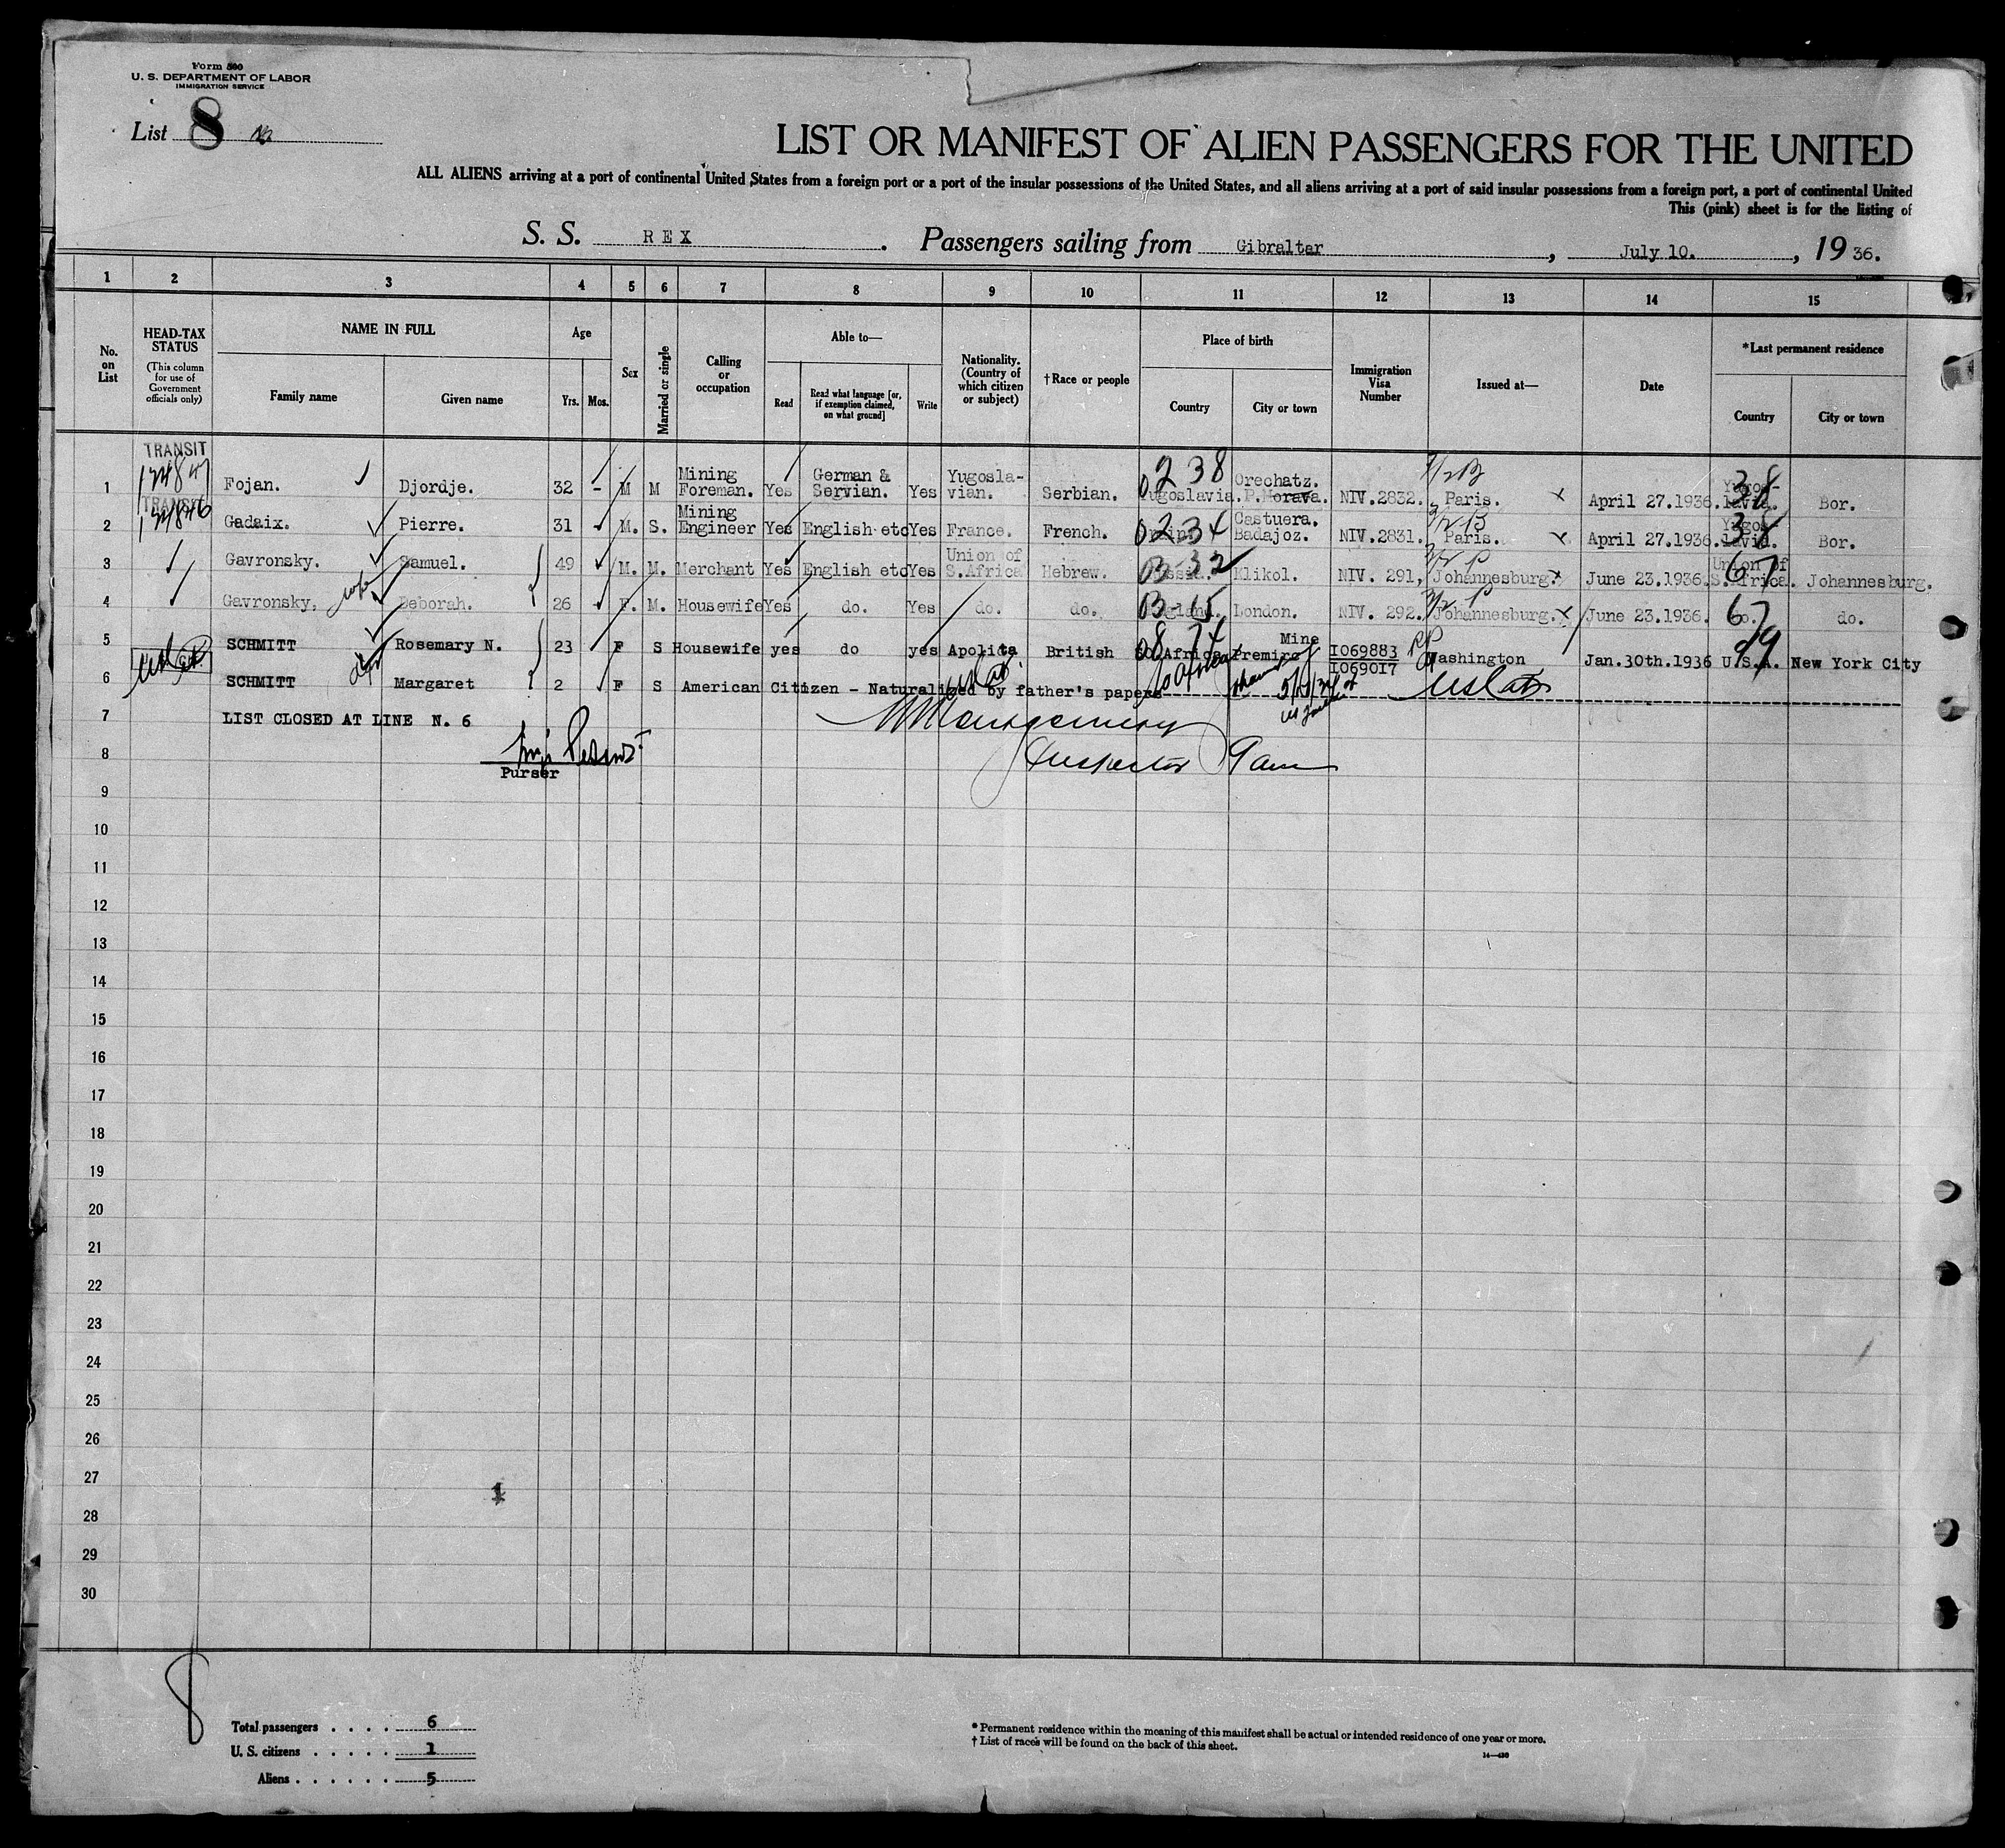 Form 500
U. S. DEPARTMENT OF LABOR
IMMIGRATION SERVICE
List 8
LIST OR MANIFEST OF ALIEN PASSENGERS FOR THE UNITED
ALL ALIENS arriving at a port of continental United States from a foreign port or a port of the insular possessions of the United States, and all aliens arriving at a port of said insular possessions from a foreign port, a port of continental United
This (pink) sheet is for the listing of
S. S. REX. Passengers sailing from Gibraltar, July 10., 1936.
1 2 3 4 5 6 7 8 9 10 11 12 13 14 15
No. on List
HEAD-TAX STATUS
(This column for use of Government officials only)
NAME IN FULL
Family name Given name
Age
Yrs. Mos.
Sex
Married or single
Calling or occupation
Able to—
Read
Read what language [or, if exemption claimed, on what ground]
Write
Nationality. (Country of which citizen or subject)
† Race or people
Place of birth
Country City or town
Immigration Visa Number
Issued at—
Date
*Last permanent residence
Country City or town
TRANSIT
1 Fojan. Djordje. 32 - M M Mining Foreman. Yes German & Servian. Yes Yugosla-vian. Serbian. 238 Yugoslavia. Orechatz. P.Morava. NIV.2832. Paris. April 27.1936. Yugos-lavia. 38 Bor.
TRANSIT
2 Gadaix. Pierre. 31 M. S. Mining Engineer Yes English etc Yes France. French. 234 Castuera. Badajoz. NIV.2831. Paris. April 27.1936. Yugos-lavia. 38 Bor.
3 Gavronsky. Samuel. 49 M. M. Merchant Yes English etc Yes Union of S.Africa Hebrew. 32 Klikol. NIV. 291, Johannesburg. June 23.1936. Union of S.Africa. 67 Johannesburg.
4 Gavronsky. Deborah. 26 F. M. Housewife Yes do. Yes do. do. England. London. NIV. 292. Johannesburg. June 23.1936. do. 67 do.
5 SCHMITT Rosemary N. 23 F S Housewife yes do yes Apolita British So.Africa Premire Mine I069883 I069017 Washington Jan.30th.1936 U.S.A. 99 New York City
6 SCHMITT Margaret 2 F S American Citizen - Naturalized by father's papers
7 LIST CLOSED AT LINE N. 6
8
Purser
Inspector
9
10
11
12
13
14
15
16
17
18
19
20
21
22
23
24
25
26
27
1
28
29
30
8
Total passengers . . . . 6
U. S. citizens . . . . . 1
Aliens . . . . . . 5
* Permanent residence within the meaning of this manifest shall be actual or intended residence of one year or more.
† List of races will be found on the back of this sheet.
14—430